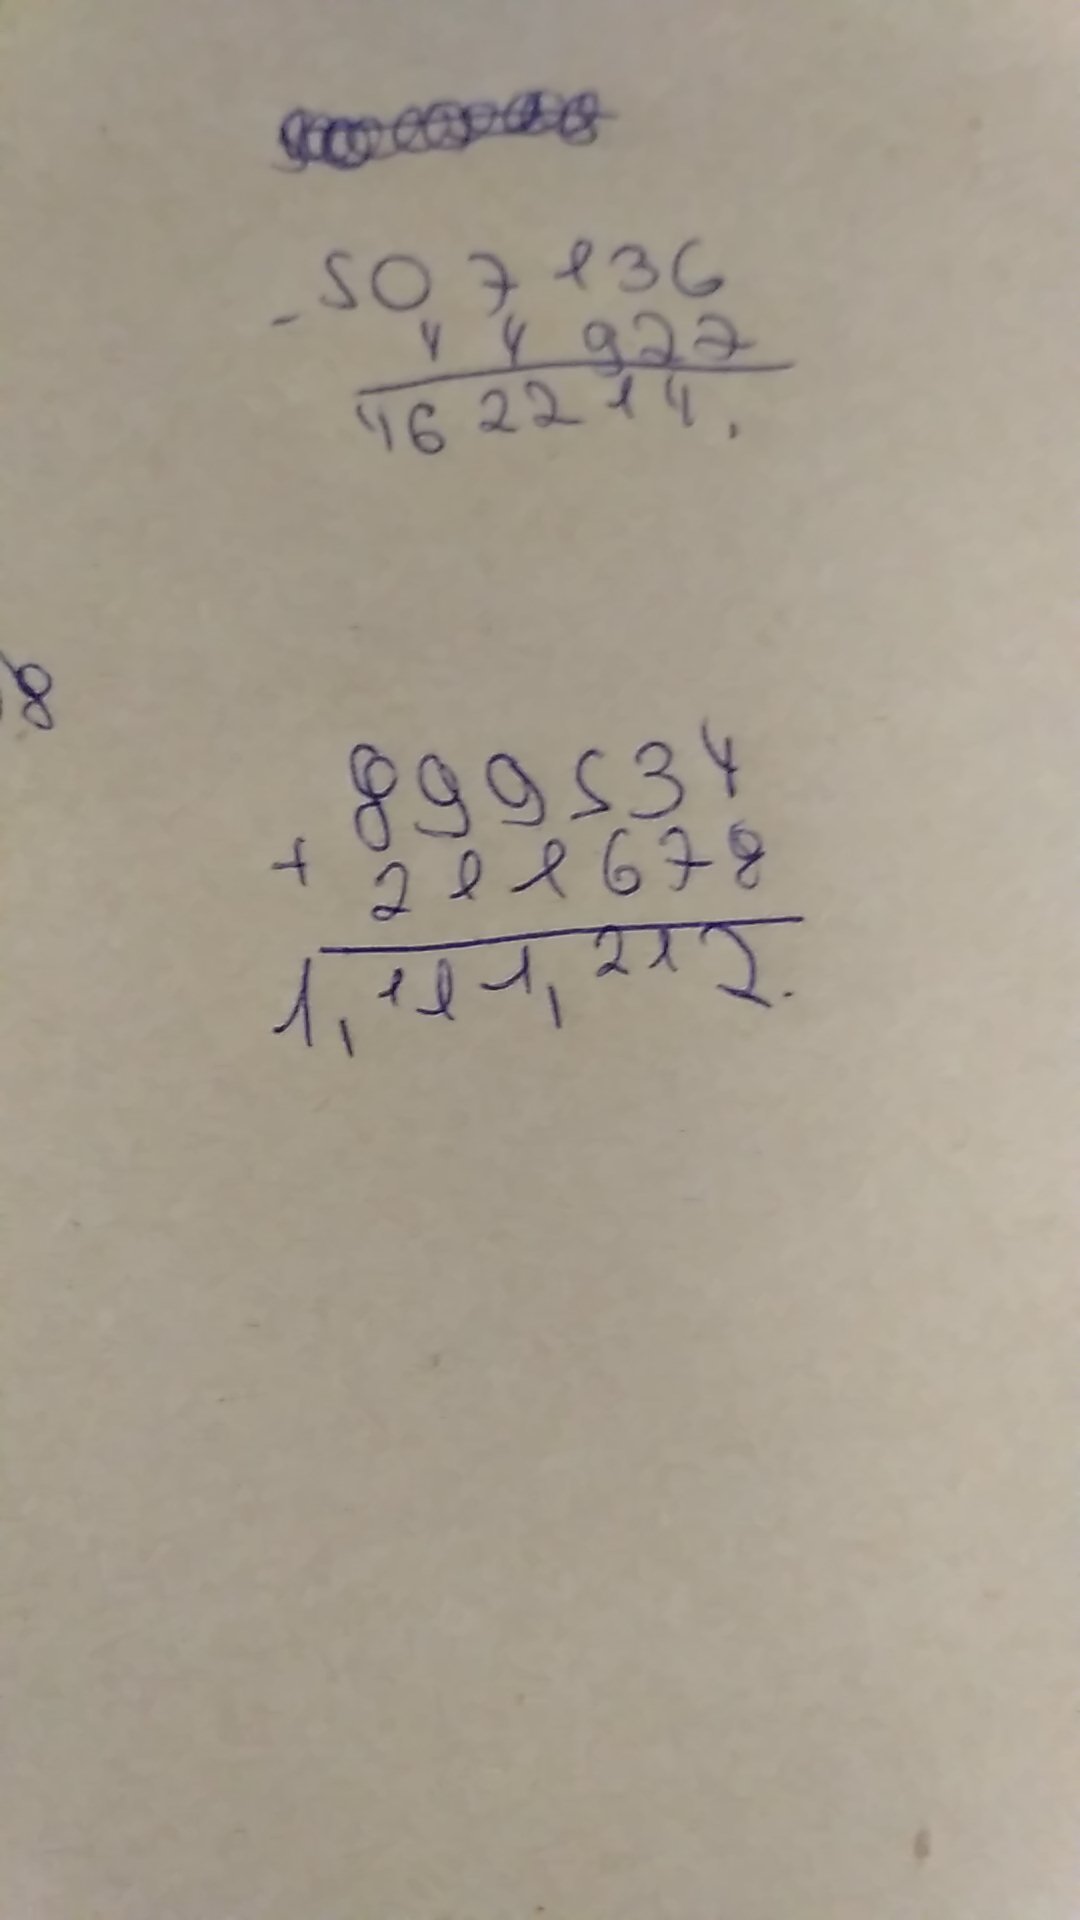 507136
- 44922
462214.
8
899534
+ 211678
1,111,212.